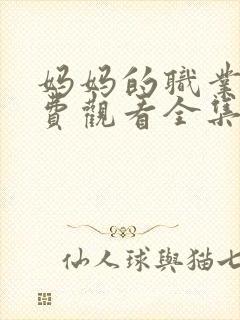 妈妈的職業
費觀看全集
仙人球與猫七